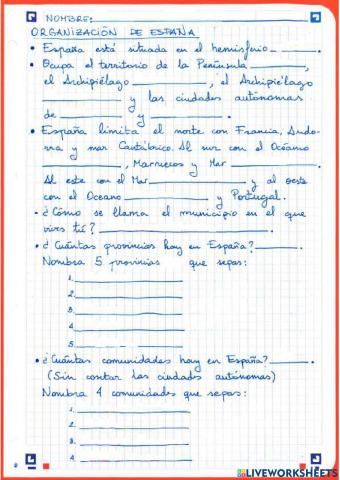 NOMBRE:
ORGANIZACIÓN DE ESPAÑA
• España está situada en el hemisferio ______.
• Ocupa el territorio de la Península ______,
el Archipiélago ______, el Archipiélago
______ y las ciudades autónomas
de ______ y ______.
• España limita el norte con Francia, Ando-
rra y mar Cantábrico. Al sur con el Océano
______, Marruecos y Mar ______
Al este con el Mar ______ y al oeste
con el Oceano ______ y Portugal.
• ¿Cómo se llama el municipio en el que
vives tú? ______.
• ¿Cuántas provincias hay en España? ______.
Nombra 5 provincias que sepas:
1. ______
2. ______
3. ______
4. ______
5. ______
• ¿Cuántas comunidades hay en España? ______.
(Sin contar las ciudades autónomas)
Nombra 4 comunidades que sepas:
1. ______
2. ______
3. ______
4. ______
LIVEWORKSHEETS